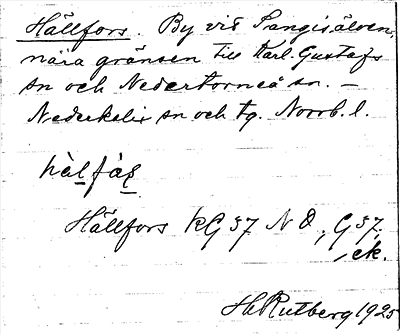 Hällfors. By vid Sangisälven,
nära gränsen till Karl. Gustafs
sn och Nedertorneå sn. —
Nederkalix sn och tg. Norrb. l.
hälfås
Hällfors KG 37 NO, G 37,
ck.
H. Rutberg 1925